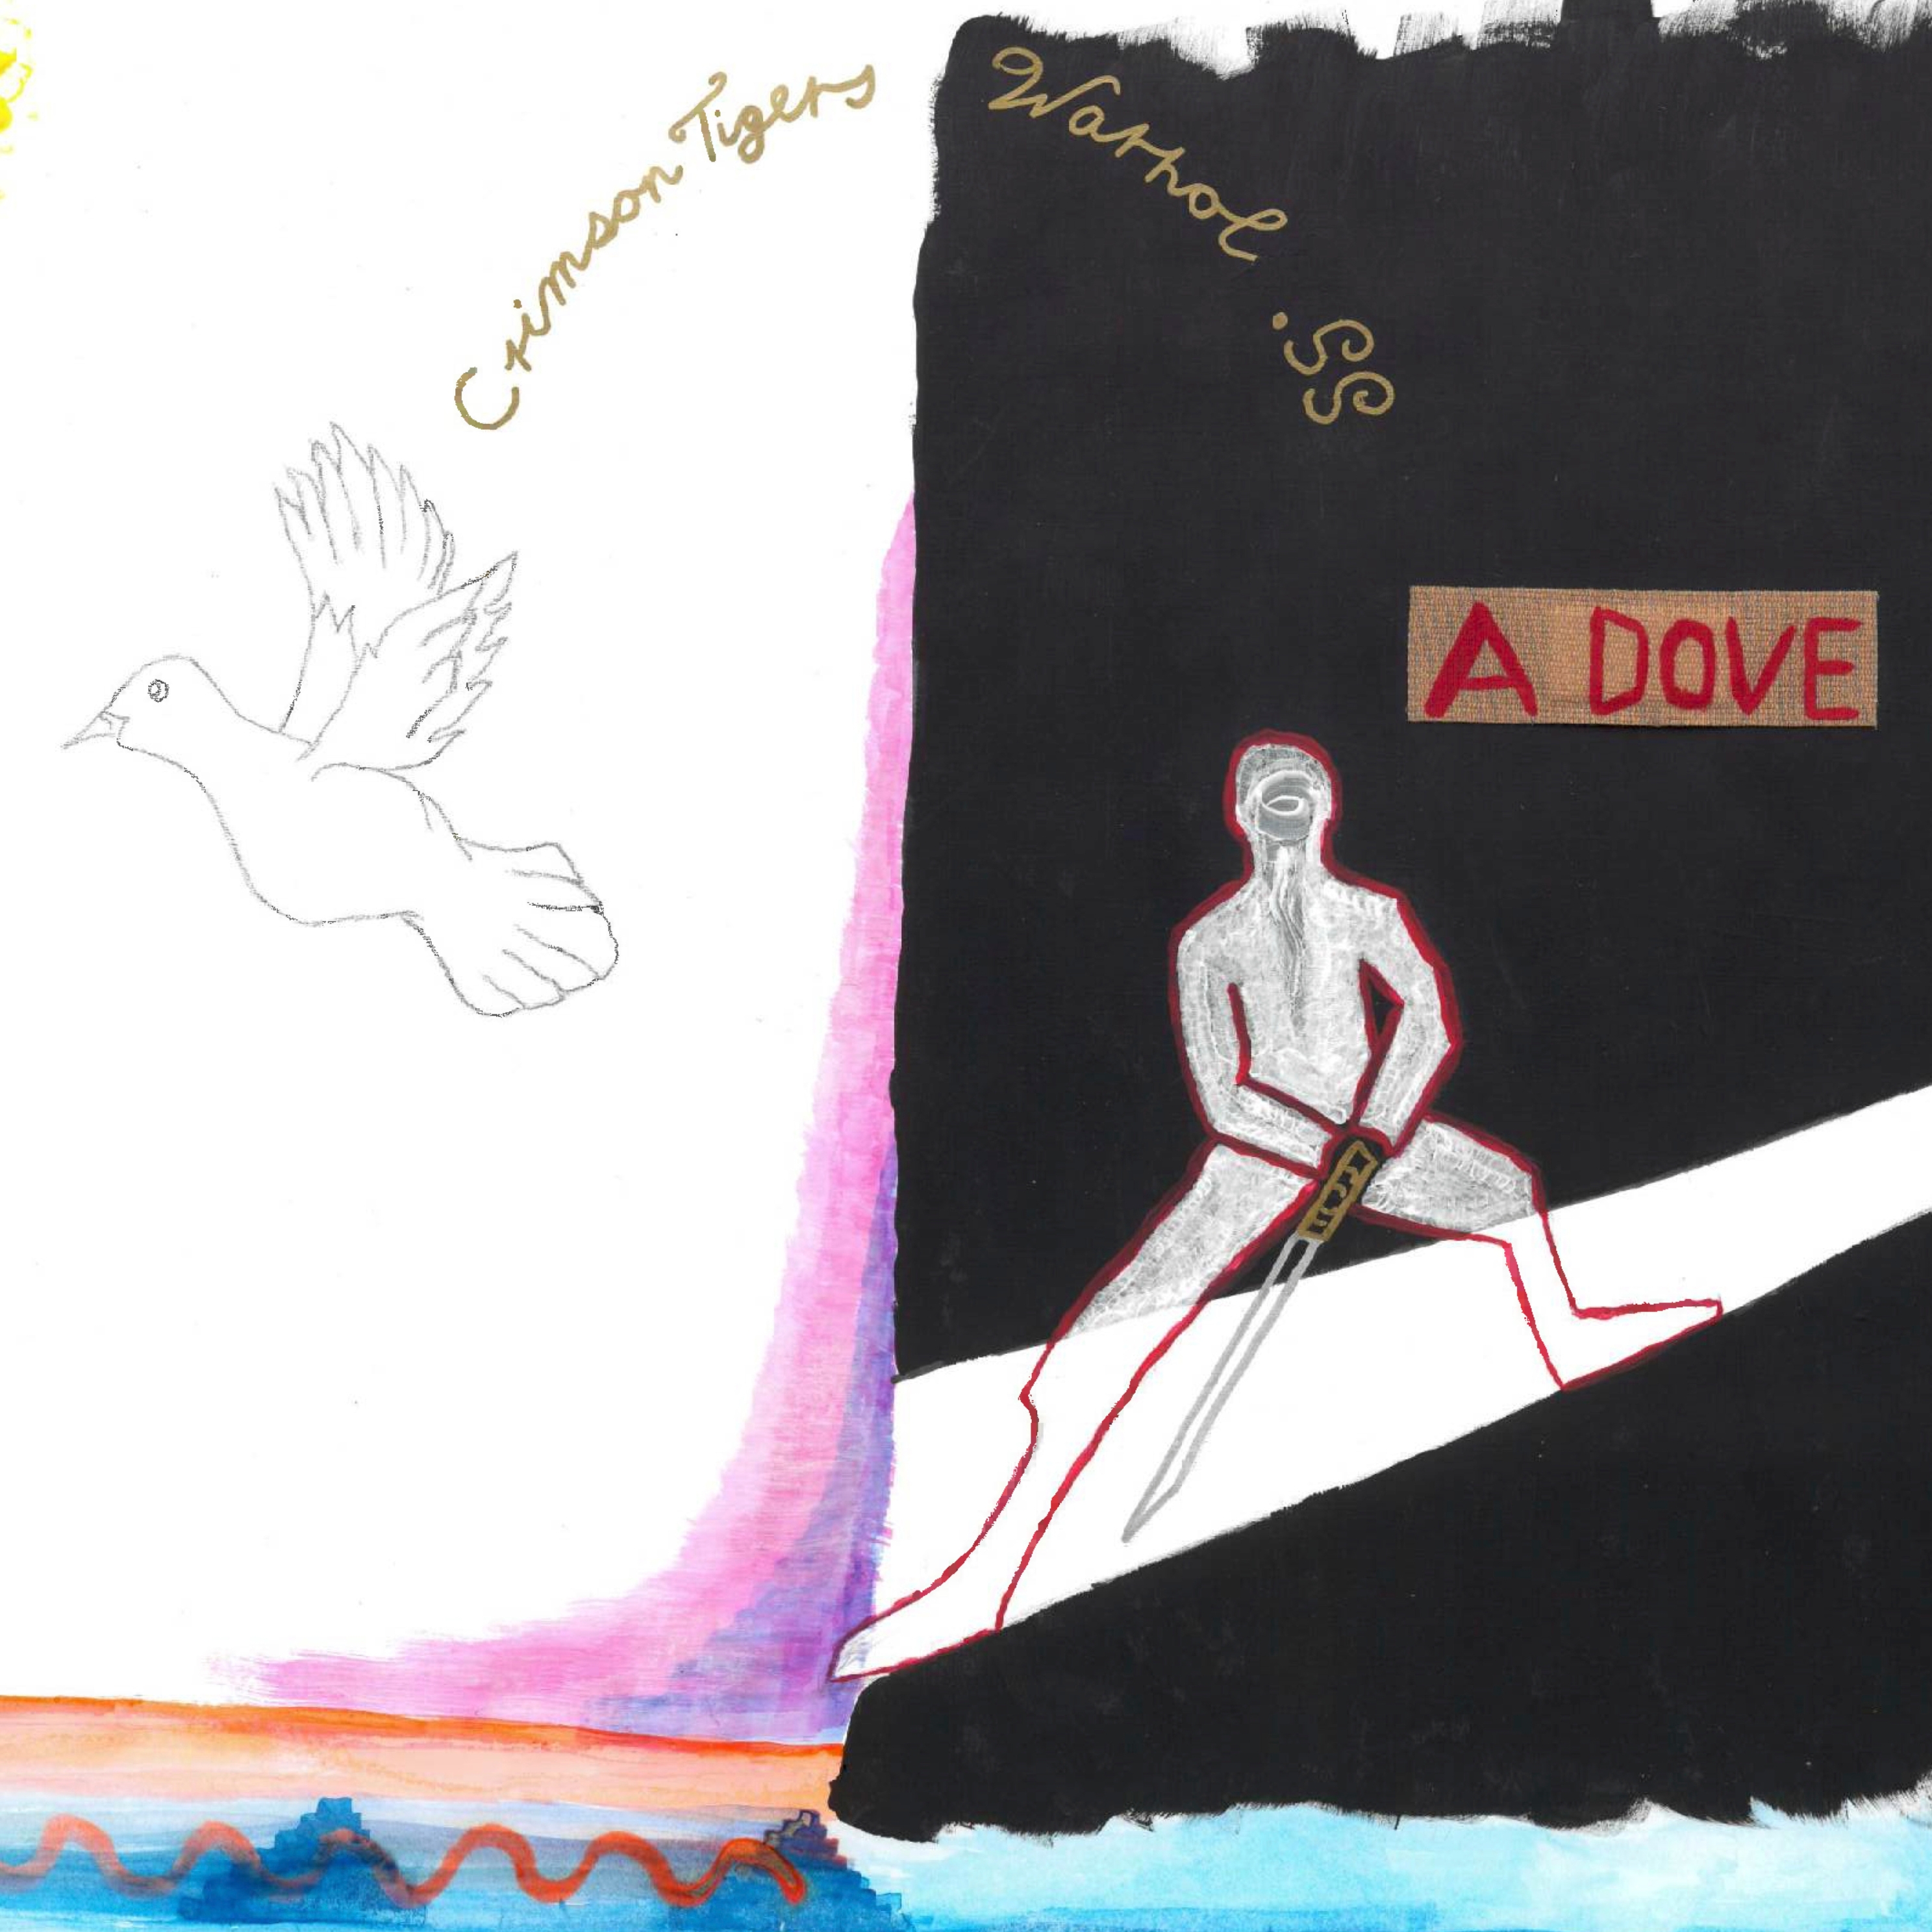 Crimson Tigers
Warhol.SS
A DOVE